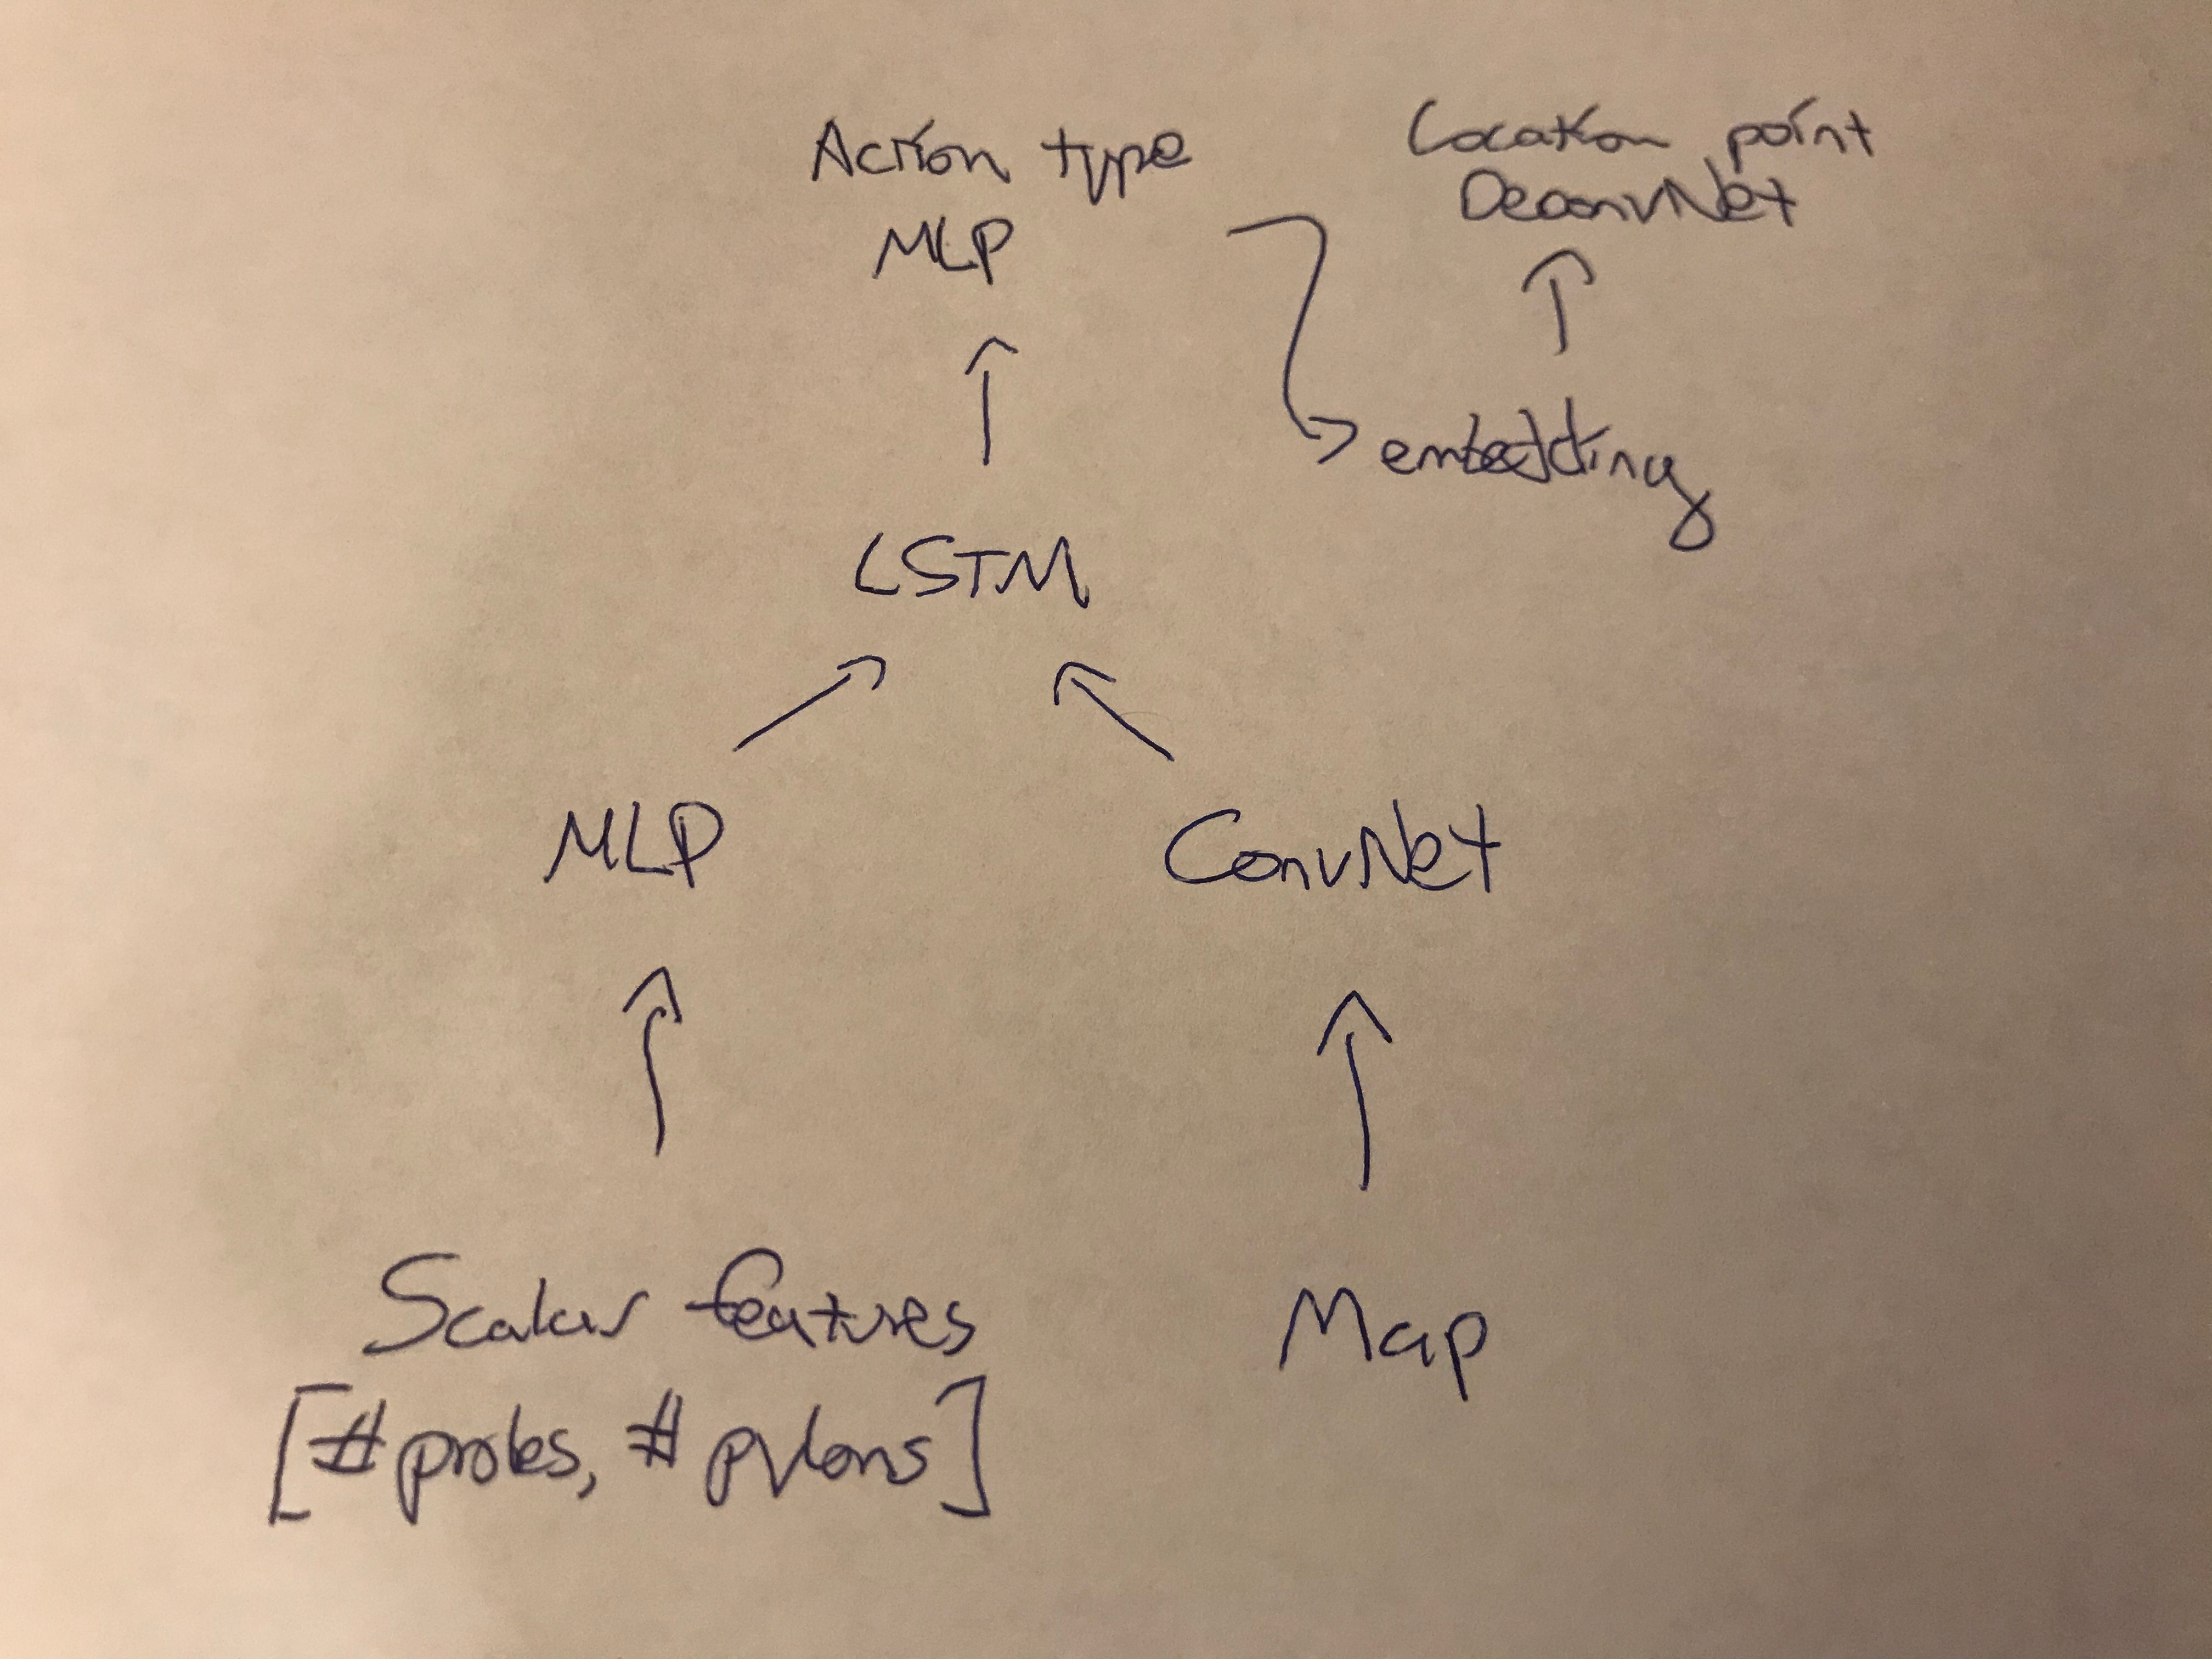 Action type
MLP
Location point
DeconvNet
embedding
LSTM
MLP
ConvNet
Scalar features
[#probes, #pylons]
Map